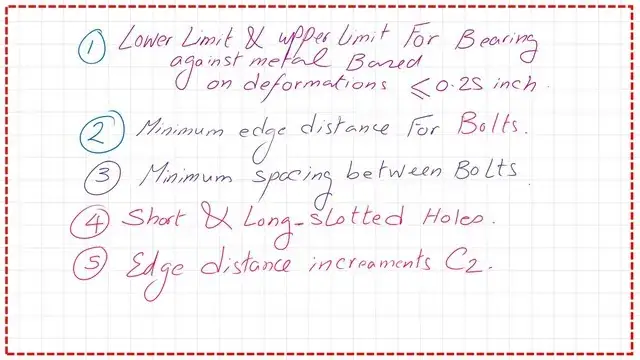 ① Lower Limit & upper Limit For Bearing
against metal Based
on deformations ≤ 0.25 inch.
② Minimum edge distance For Bolts.
③ Minimum spacing between Bolts
④ Short & Long-slotted Holes.
⑤ Edge distance increaments C2.